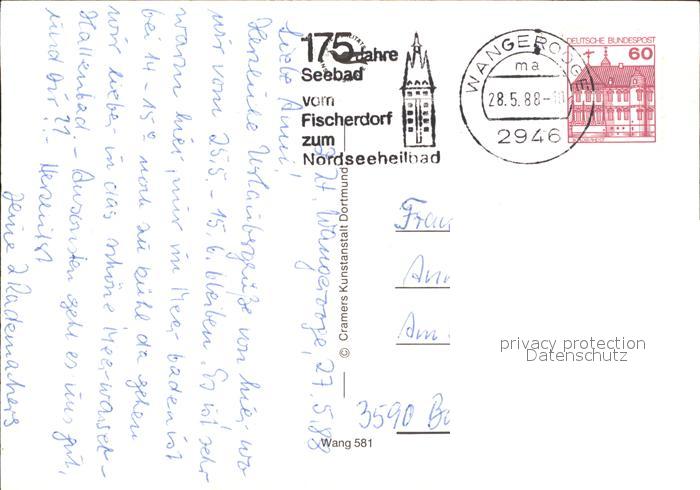 175 Jahre
Seebad
vom
Fischerdorf
zum
Nordseeheilbad
WANGEROOGE
ma
28.5.88-
2946
DEUTSCHE BUNDESPOST
60
z.Zt. Wangerooge, 27.5.88
Liebe Anni!
Herzliche Urlaubsgrüße von hier, wo
wir vom 25.5. - 15.6. bleiben. Es ist sehr
warm hier, nur im Meer baden ist
bei 14-15° noch zu kühl, da gehen
wir lieber in das schöne Meerwasser-
Hallenbad. - Ansonsten geht es uns gut,
und Dir?? - Herzlichst
Deine 2 Rademachers
© Cramers Kunstanstalt Dortmund
Wang 581
Frau
An
Am
3590 Ba
privacy protection
Datenschutz